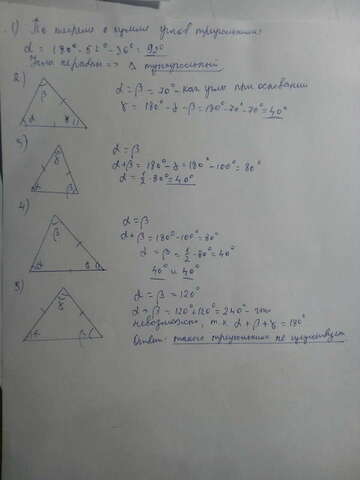 1) По теореме о сумме углов треугольника:
α = 180° - 52° - 36° = 92°
Углы неравны => Δ тупоугольный
2)
β
α
γ
α = β = 70° - как углы при основании
γ = 180° - α - β = 180° - 70° - 70° = 40°
3)
γ
α
β
α = β
α + β = 180° - γ = 180° - 100° = 80°
α = 1/2 · 80° = 40°
4)
β
α
α = β
α + β = 180° - 100° = 80°
α = β = 1/2 · 80° = 40°
40° и 40°
γ
α
β
α = β = 120°
α + β = 120° + 120° = 240° - что
невозможно, т.к α + β + γ = 180°
Ответ: такого треугольника не существует